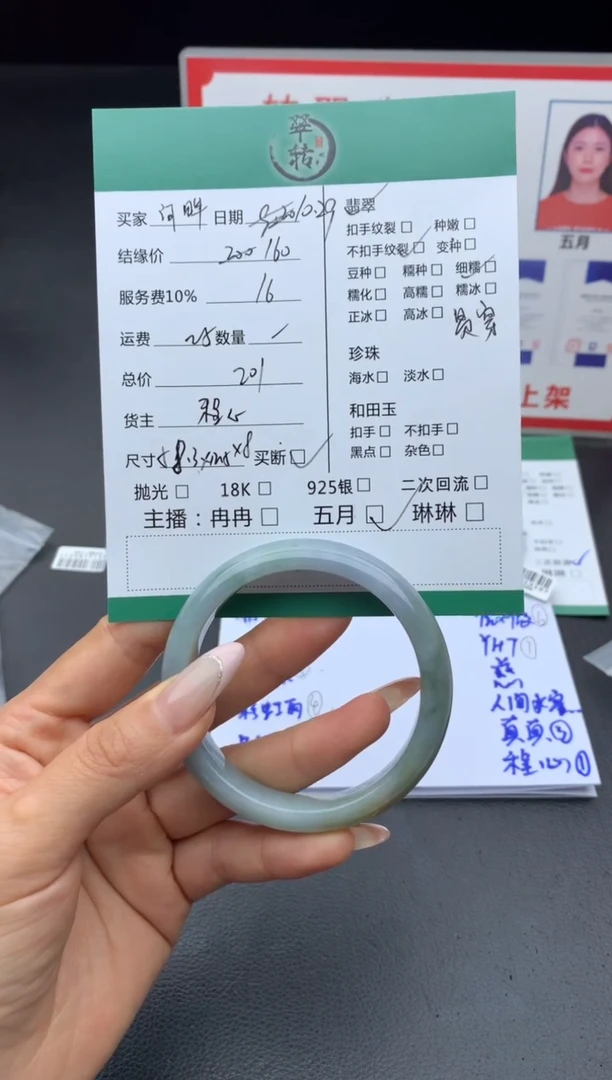 翠转
买家 日期 2010.29
结缘价 200 160
服务费10% 16
运费 25 数量 /
总价 201
货主 程心
尺寸 58.3 ×8 买断□
翡翠
扣手纹裂□ 种嫩□
不扣手纹裂□ 变种□
豆种□ 糯种□ 细糯□
糯化□ 高糯□ 糯冰□
正冰□ 高冰□
珍珠
海水□ 淡水□
和田玉
扣手□ 不扣手□
黑点□ 杂色□
抛光□ 18K□ 925银□ 二次回流□
主播：冉冉□ 五月□ 琳琳□
五月
上架
YHT①
人间水蜜
真真③
程心①
彩虹雨④